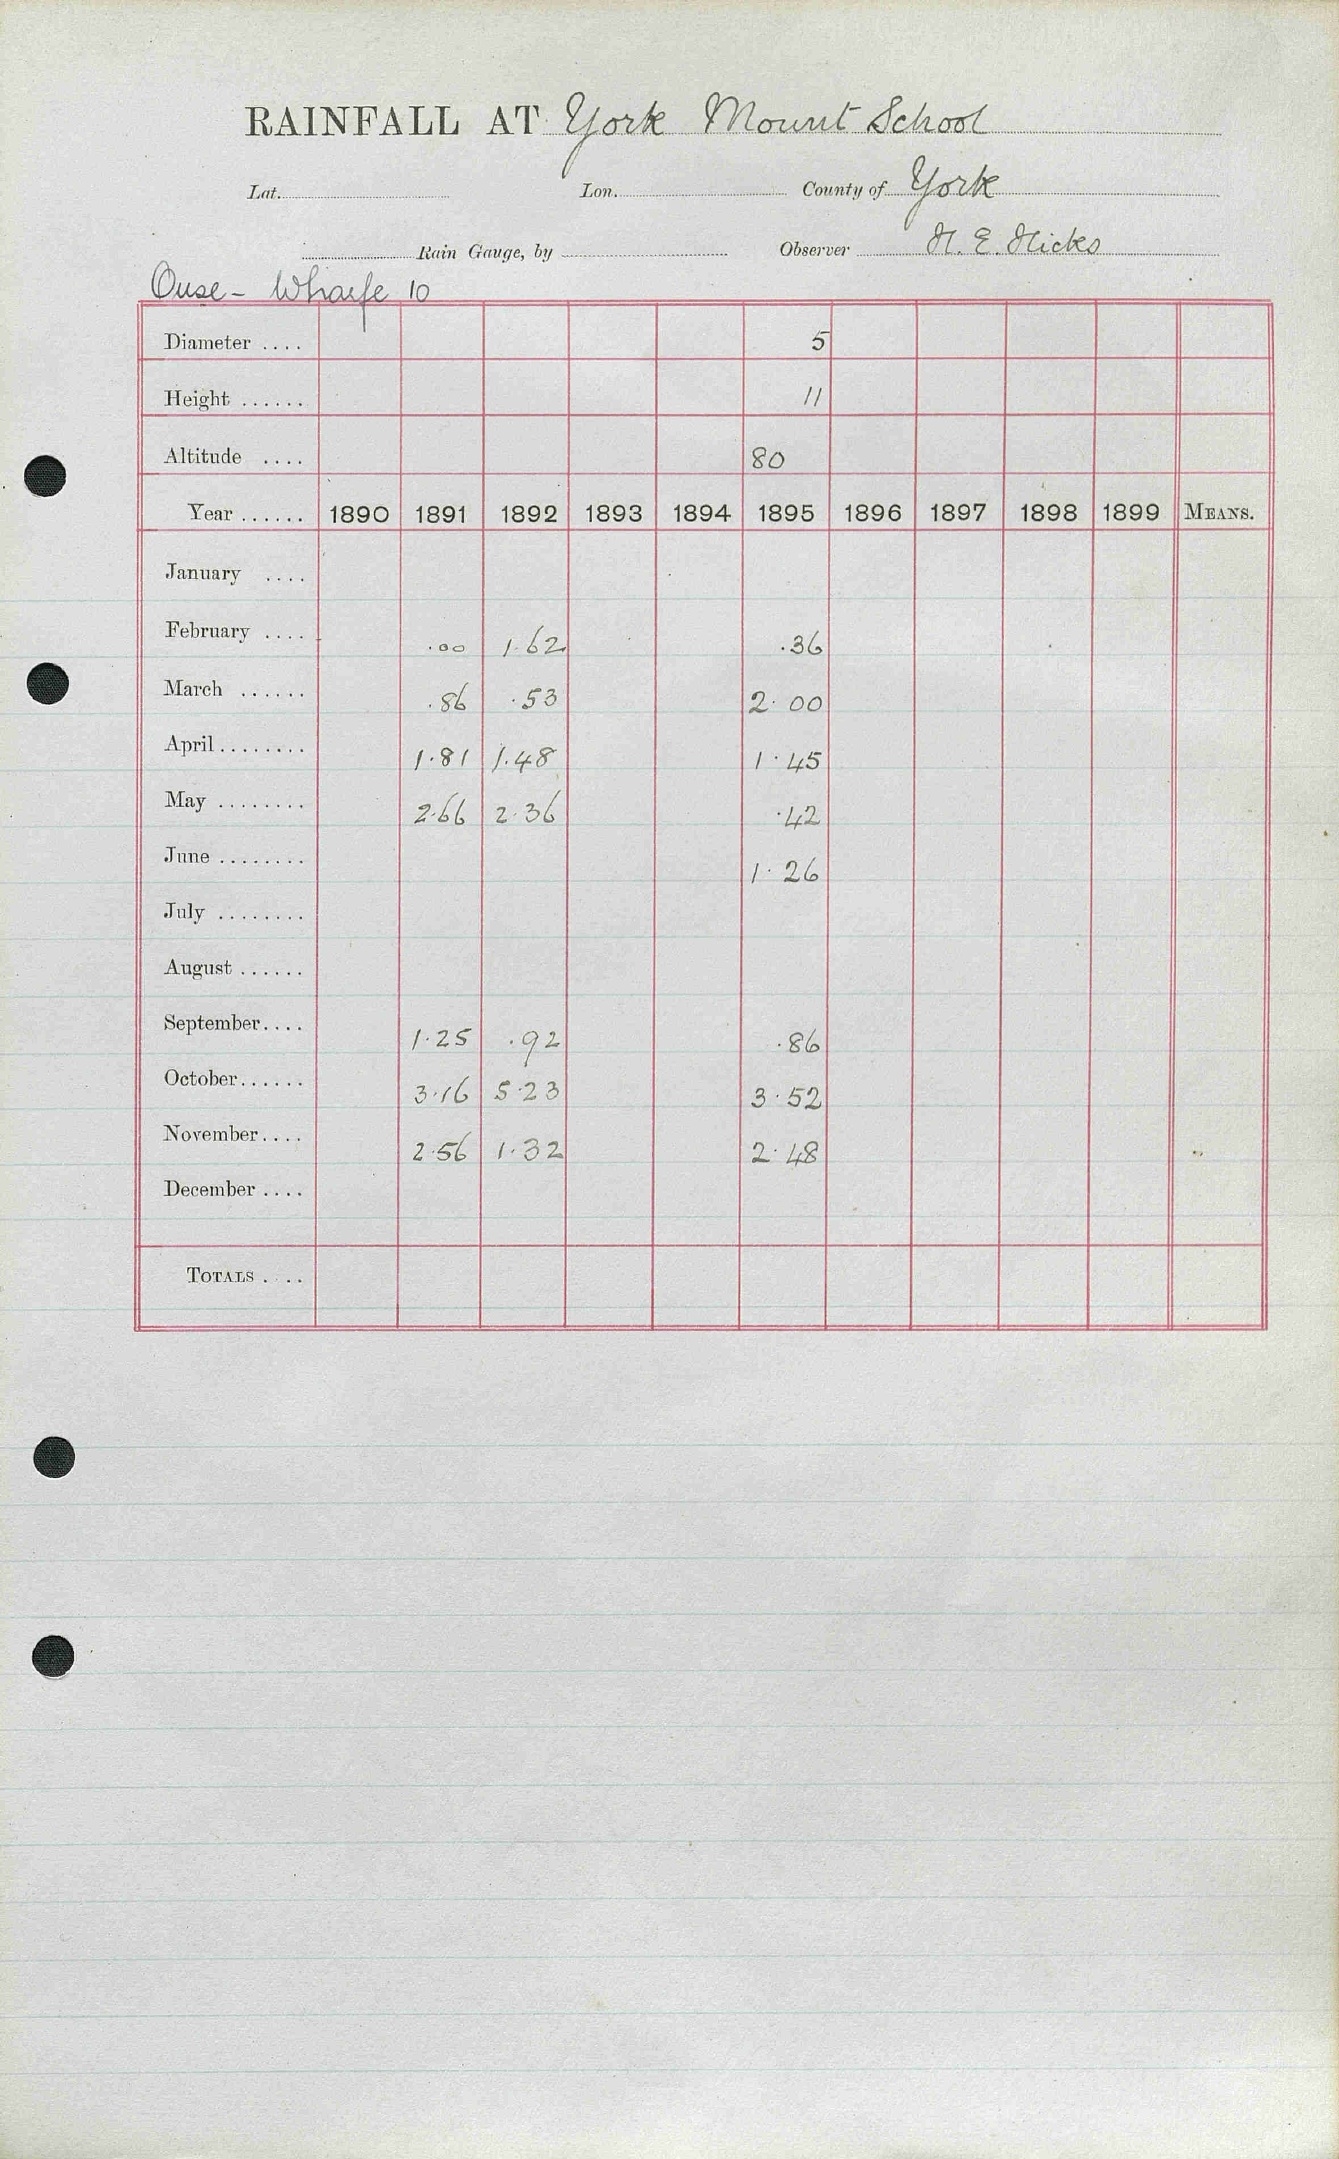 RAINFALL AT York Mount School
Lat. Lon. County of York
Rain Gauge, by Observer H. E. Hicks
Ouse - Wharfe 10
Diameter .... 5
Height ...... 11
Altitude .... 80
Year ...... 1890 1891 1892 1893 1894 1895 1896 1897 1898 1899 MEANS.
January ....
February .... .00 1.62 .36
March ...... .86 .53 2.00
April ........ 1.81 1.48 1.45
May ........ 2.66 2.36 .42
June ........ 1.26
July ........
August ......
September.... 1.25 .92 .86
October...... 3.16 5.23 3.52
November.... 2.56 1.32 2.48
December ....
TOTALS ....